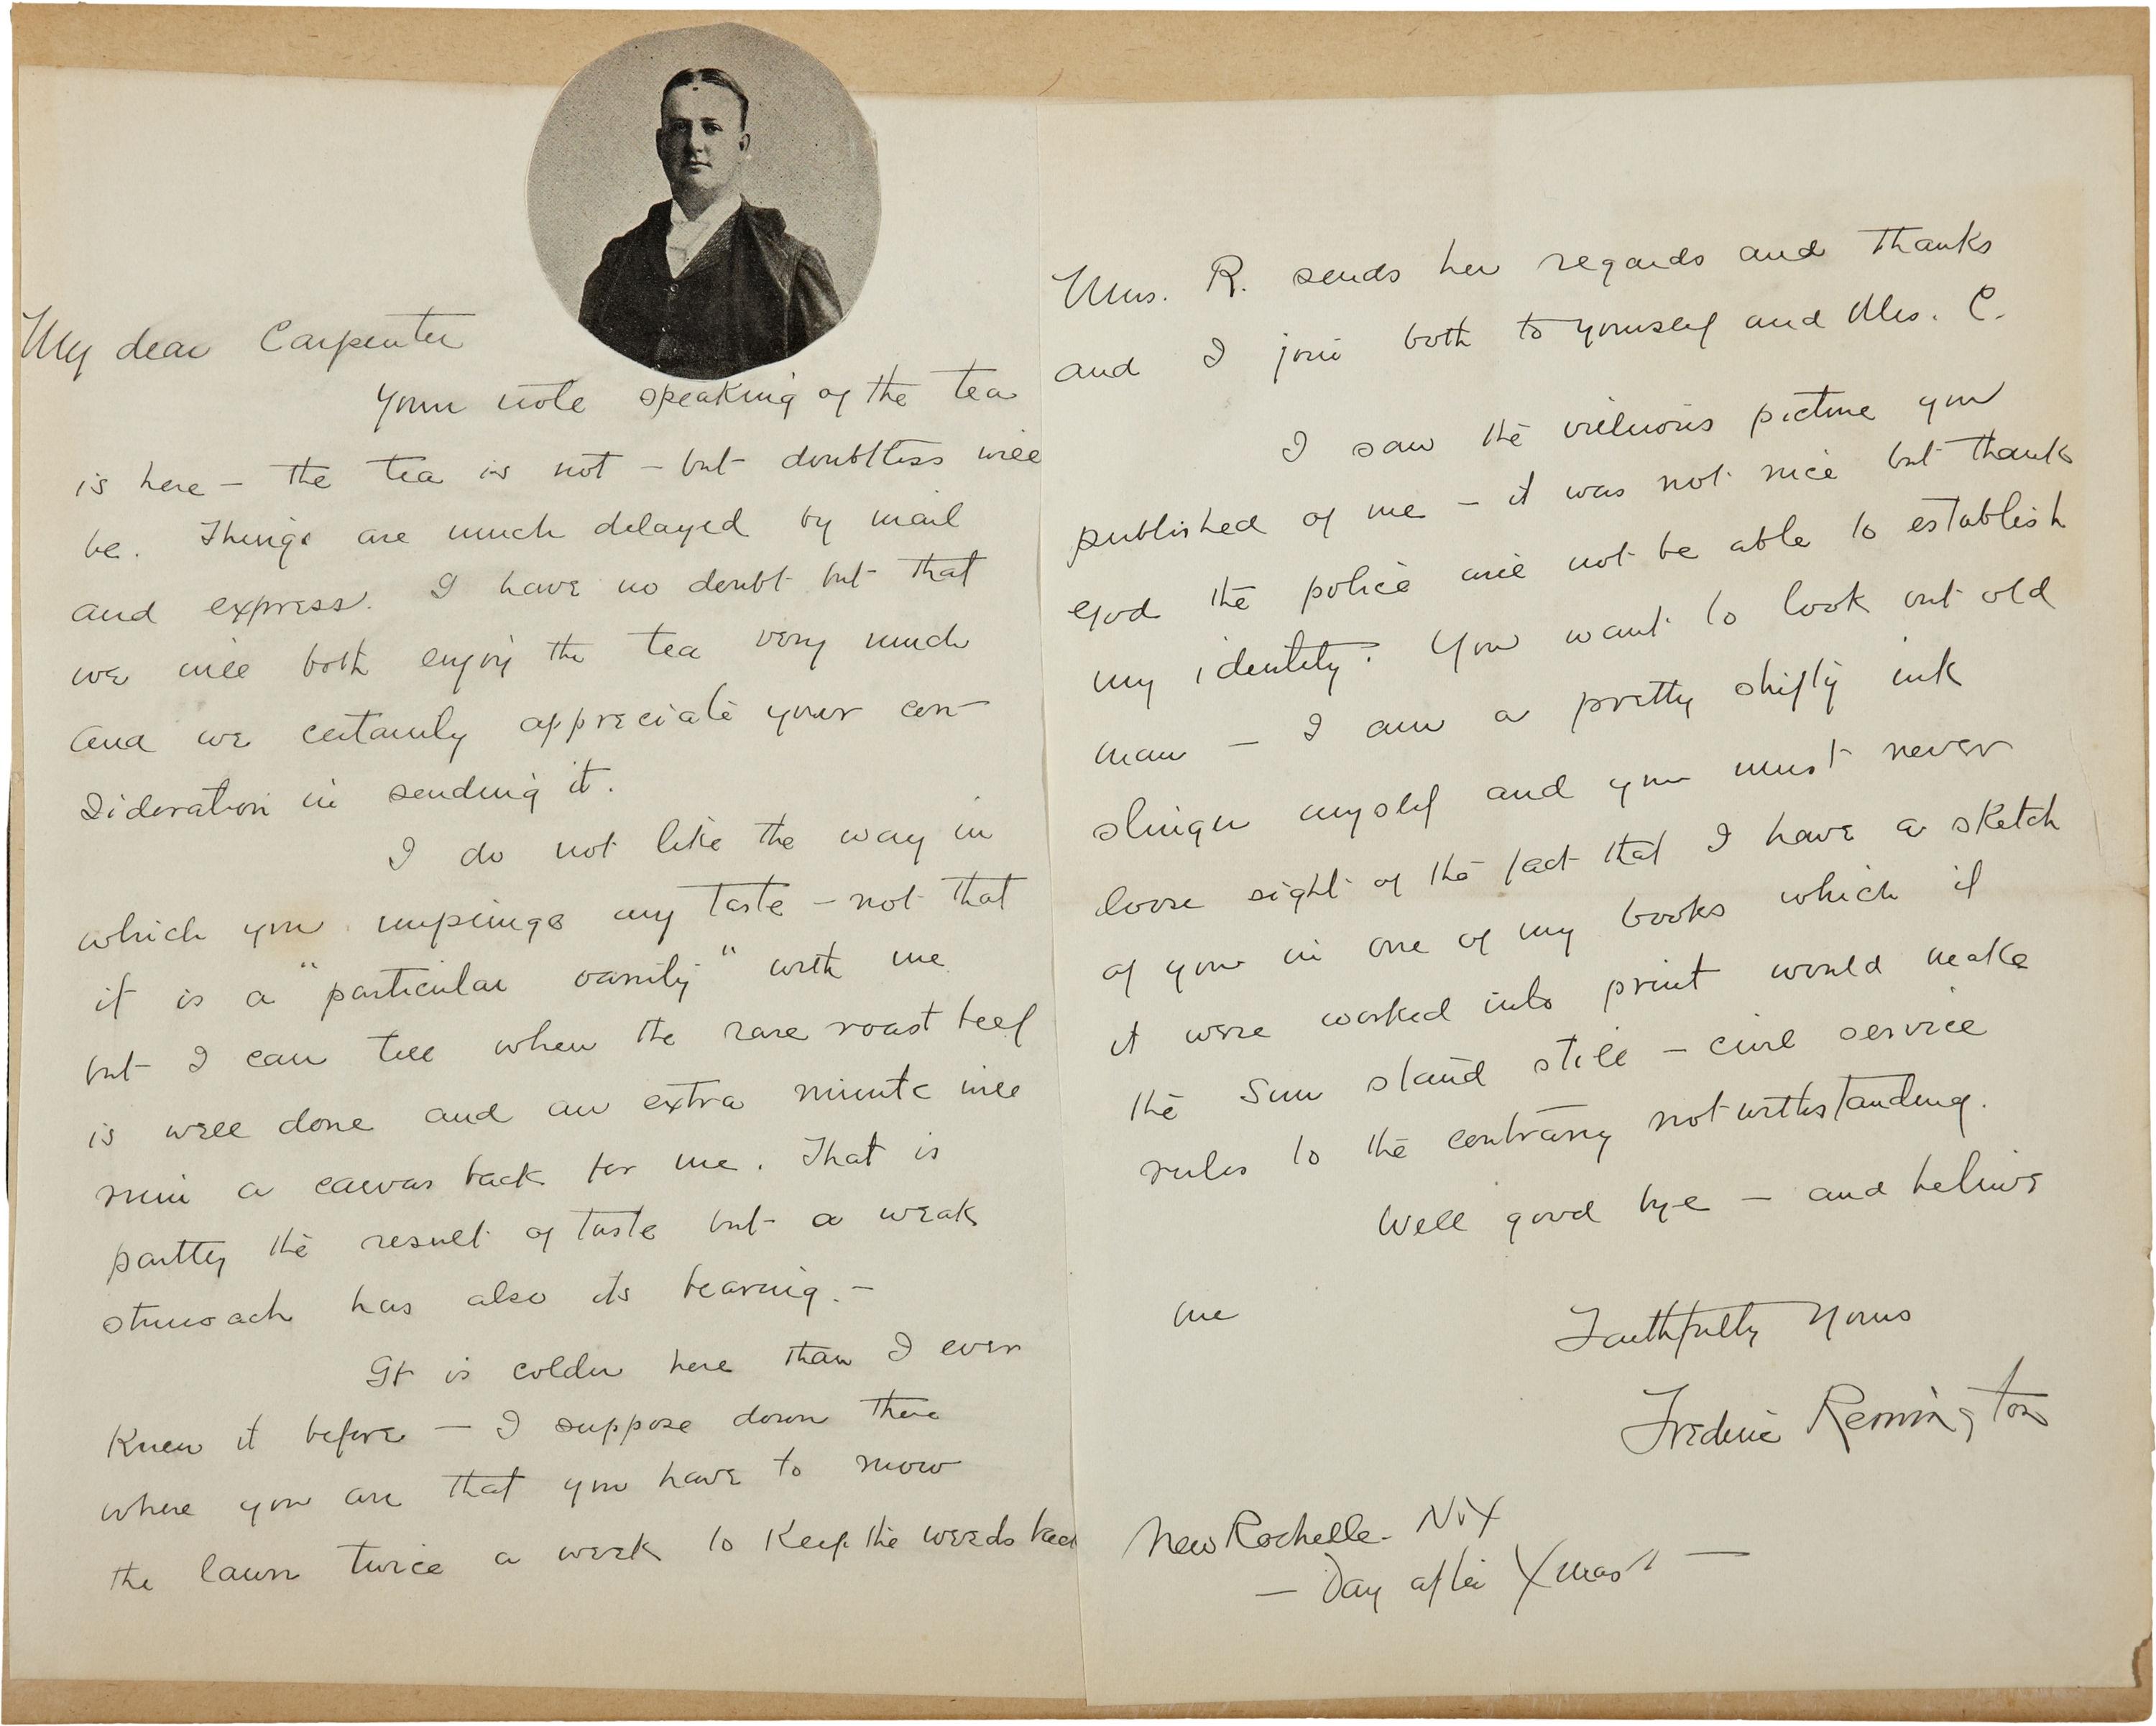 My dear Carpenter
Your note speaking of the tea
is here – the tea is not – but doubtless will
be. Things are much delayed by mail
and express. I have no doubt but that
we will both enjoy the tea very much
and we certainly appreciate your con-
sideration in sending it.
I do not like the way in
which you impinge my taste – not that
it is a "particular vanity" with me
but I can tell when the rare roast beef
is well done and an extra minute will
ruin a canvas back for me. That is
partly the result of taste but a weak
stomach has also its bearing. –
It is colder here than I ever
knew it before – I suppose down there
where you are that you have to mow
the lawn twice a week to keep the weeds back
Mrs. R. sends her regards and thanks
and I join both to yourself and Mrs. C.
I saw the picture you
published of me – it was not nice but thank
god the police will not be able to establish
my identity. You want to look out old
man – I am a pretty shifty ink
slinger myself and you must never
loose sight of the fact that I have a sketch
of you in one of my books which if
it were worked into print would make
the Sun stand still – civil service
rules to the contrary notwithstanding.
Well good bye – and believe
me
Faithfully Yours
Frederic Remington
New Rochelle – N.Y
– Day after Xmas –